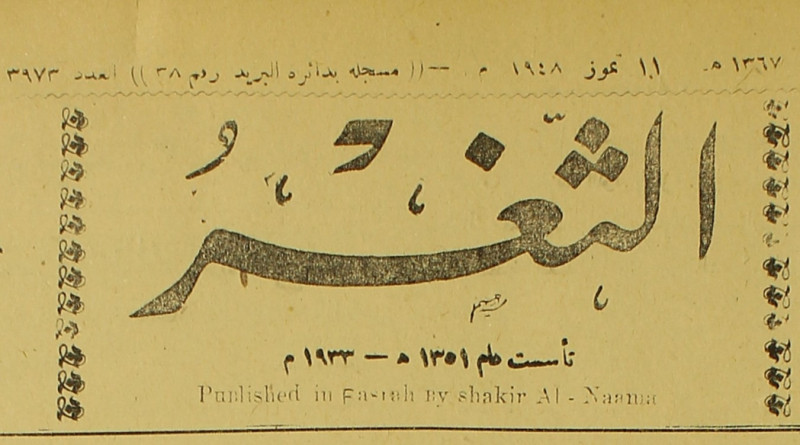 ١٣٦٧ هـ ١١ تموز ١٩٤٨ م — (( مسجله بدائرة البريد رقم ٢٨ )) العدد ٣٩٧٣
الثغر
تأسست عام ١٣٥١ ه — ١٩٣٣ م
Published in Basrah By shakir Al - Naama